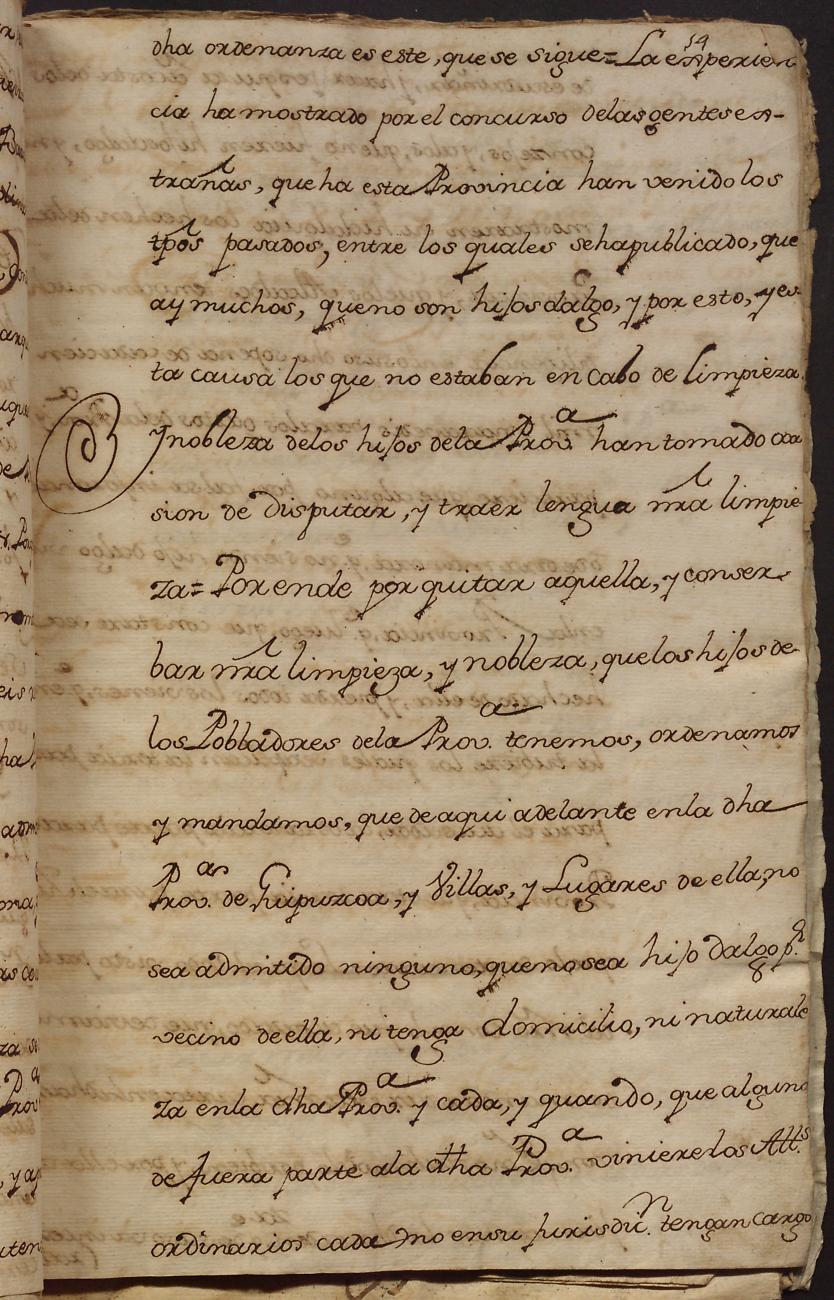 14
dha ordenanza es este, que se sigue = La experien
cia ha mostrado por el concurso delas gentes ex-
trañas, que ha esta Provincia han venido los
tpos pasados, entre los quales seha publicado, que
ay muchos, que no son hijos dalgo, y por esto, y es
ta causa los que no estaban en Cabo de limpieza
y nobleza delos hijos dela Prov.ª han tomado oca
sion de disputar, y traer lengua nrã limpie
za = Por ende por quitar aquella, y conser
bar nrã limpieza, y nobleza, que los hijos de
los Pobladores dela Prov.ª tenemos, ordenamos
y mandamos, que de aqui adelante enla dha
Prov.ª de Guipuzcoa, y Villas, y Lugares de ella, no
sea admitido ninguno, que no sea hijo dalgo pr.
vecino de ella, ni tenga domicilio, ni naturale
za enla dha Prov.ª y cada, y quando, que alguno
de fuera parte ala dha Prov.ª viniere los Alls.
ordinarios cada uno ensu jurisdicn. tengan cargo